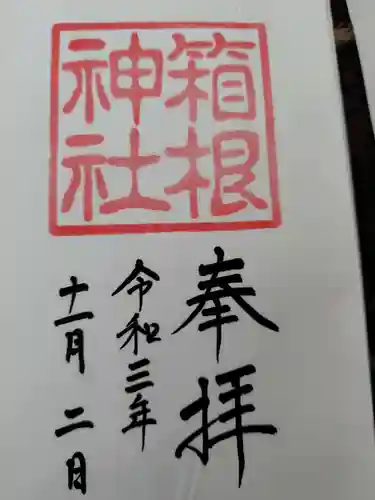 箱根
神社
奉拝
令和三年
十一月二日